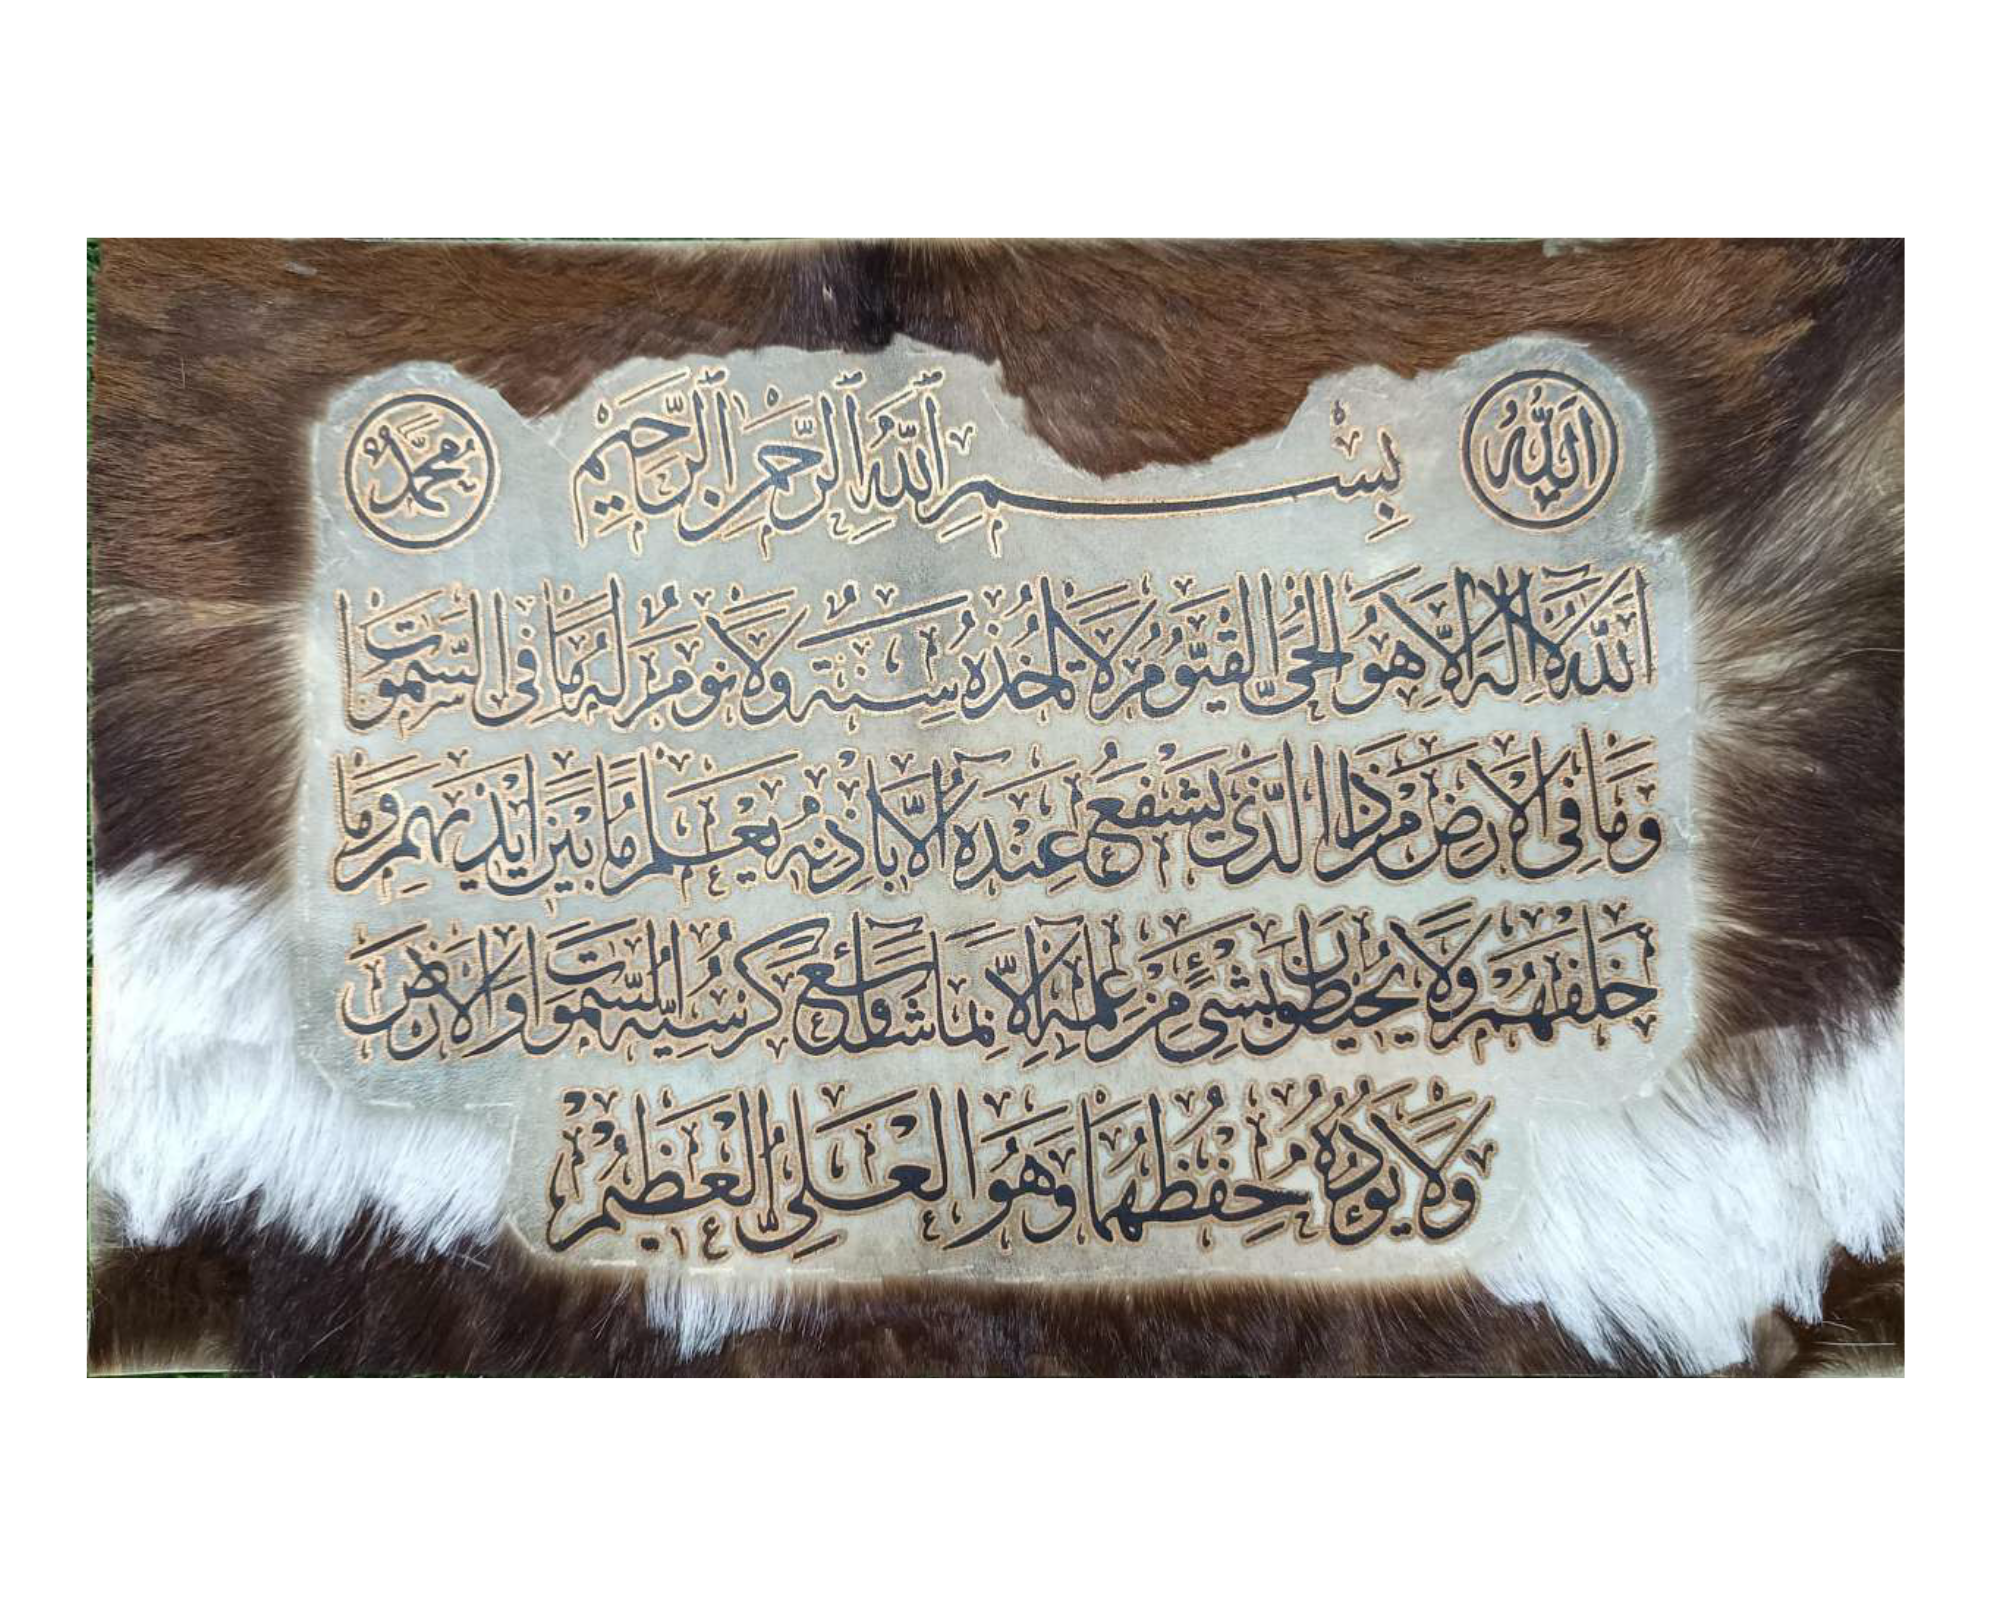 اَللّٰهُ
بِسْمِ ٱللّٰهِ ٱلرَّحْمٰنِ ٱلرَّحِيْمِ
مُحَمَّدٌ
اَللّٰهُ لَا اِلٰهَ اِلَّا هُوَ الْحَیُّ الْقَیُّوْمُ لَا تَاْخُذُهٗ سِنَةٌ وَلَا نَوْمٌ لَهٗ مَا فِی السَّمٰوٰتِ
وَمَا فِی الْاَرْضِ مَنْ ذَا الَّذِیْ یَشْفَعُ عِنْدَهٗٓ اِلَّا بِاِذْنِهٖ یَعْلَمُ مَا بَیْنَ اَیْدِیْهِمْ وَمَا
خَلْفَهُمْ وَلَا یُحِیْطُوْنَ بِشَیْءٍ مِّنْ عِلْمِهٖٓ اِلَّا بِمَا شَآءَ وَسِعَ كُرْسِیُّهُ السَّمٰوٰتِ وَالْاَرْضَ
وَلَا یَئُوْدُهٗ حِفْظُهُمَا وَهُوَ الْعَلِیُّ الْعَظِیْمُ